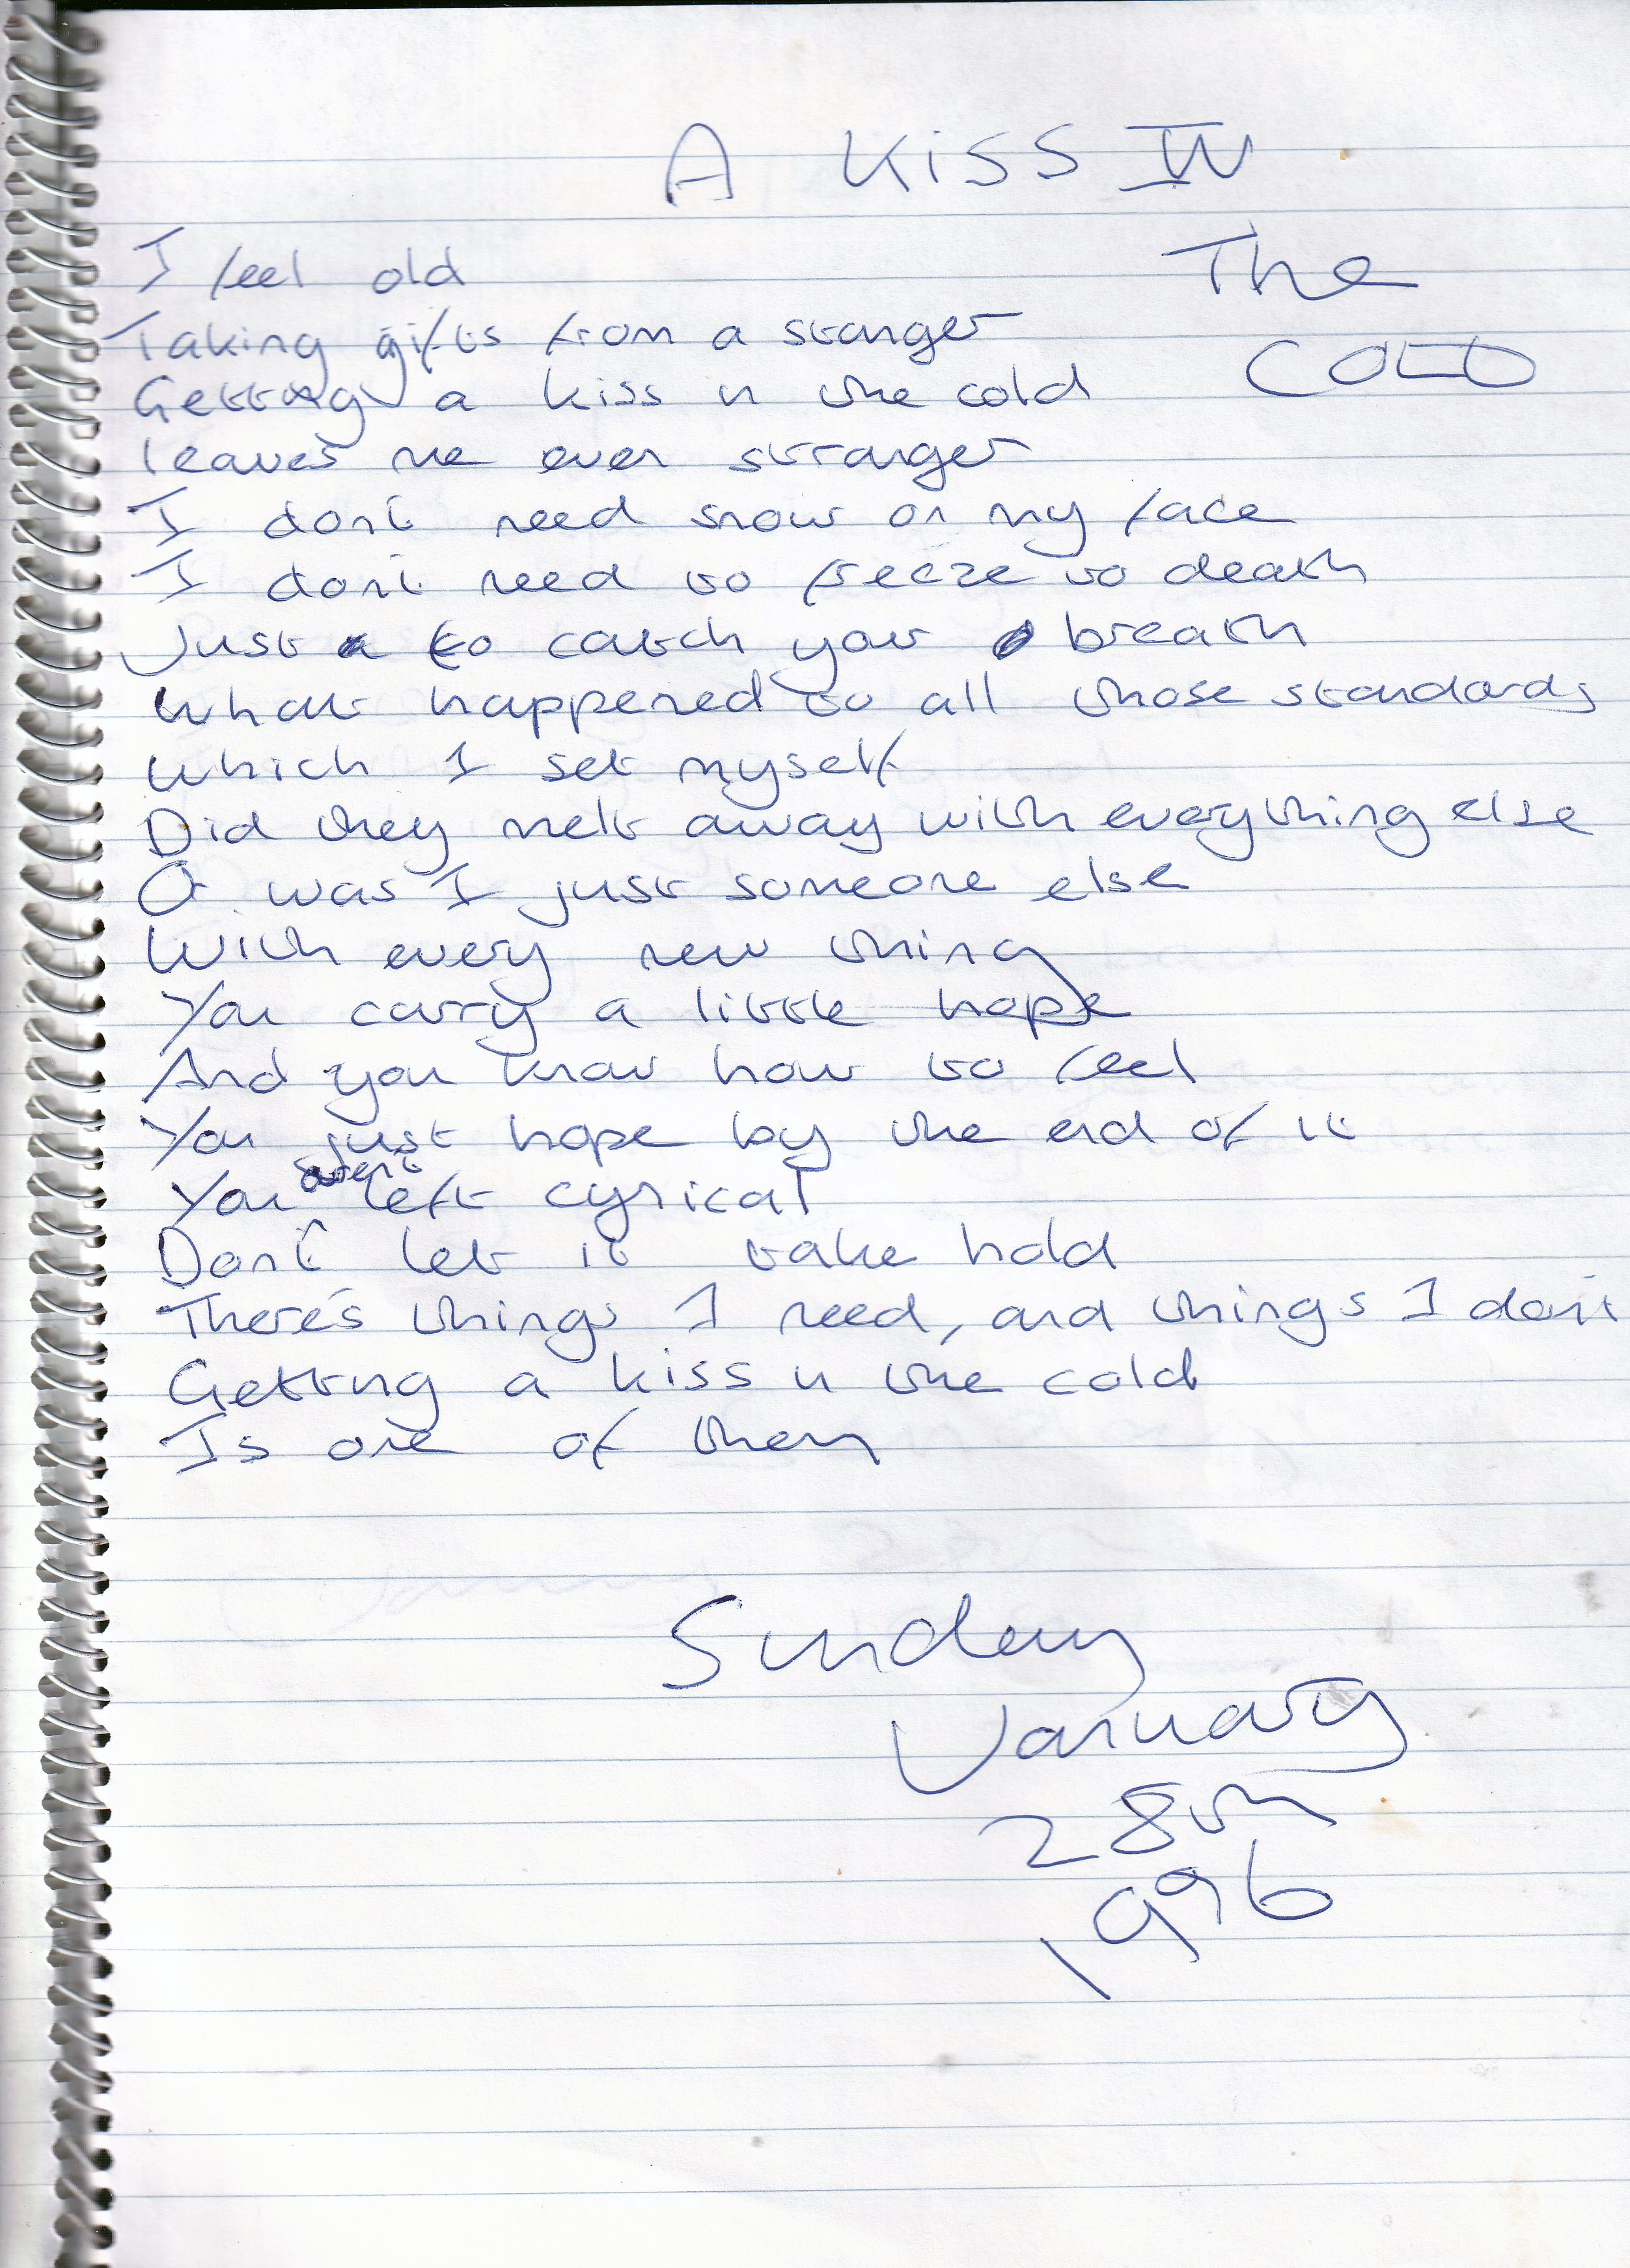 A KISS IN
The
COLD
I feel old
Taking gifts from a stanger
Getting a kiss in the cold
leaves me even stranger
I dont need snow on my face
I dont need to freeze to death
Just to catch your breath
What happened to all those standards
which I set myself
Did they melt away with everything else
Or was I just someone else
With every new thing
You carry a little hope
And you know how to feel
You just hope by the end of it
You arent left cynical
Dont let it take hold
There's things I need, and things I dont
Getting a kiss in the cold
Is one of them
Sunday
January
28th
1996